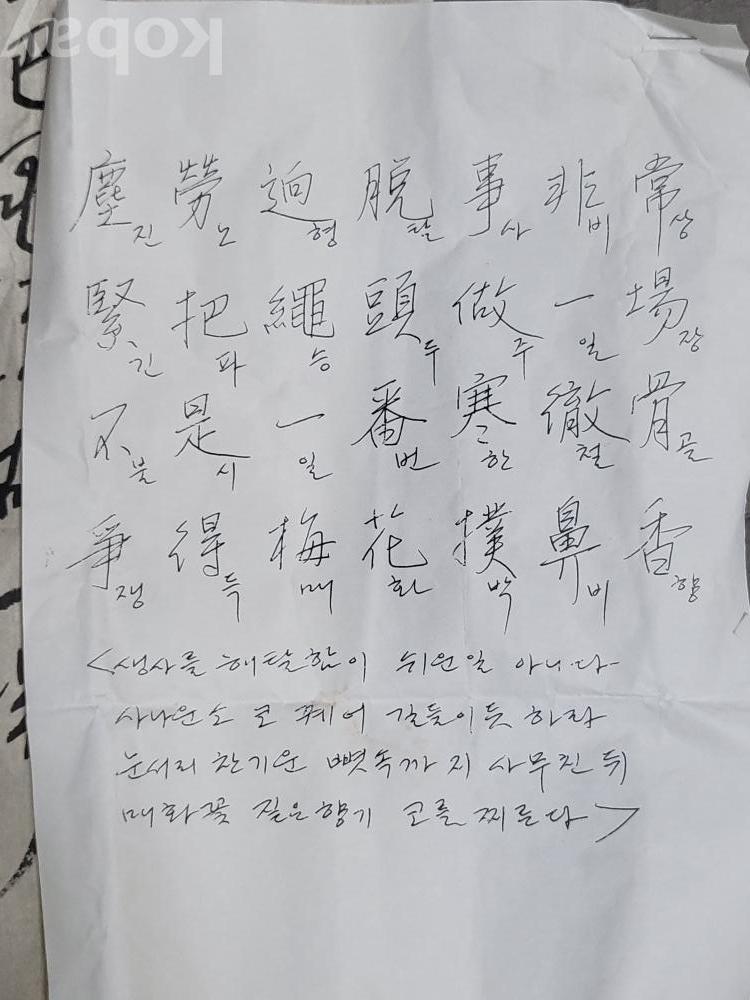 塵진 勞노 逈형 脫탈 事사 非비 常상
緊긴 把파 繩승 頭두 做주 一일 場장
不불 是시 一일 番번 寒한 徹철 骨골
爭쟁 得득 梅매 花화 撲박 鼻비 香향
<생사를 해탈함이 쉬운일 아니다
사나운소 코 꿰어 길들이듯 하라
눈서리 찬기운 뼛속까지 사무친 뒤
매화꽃 짙은향기 코를 찌른다>